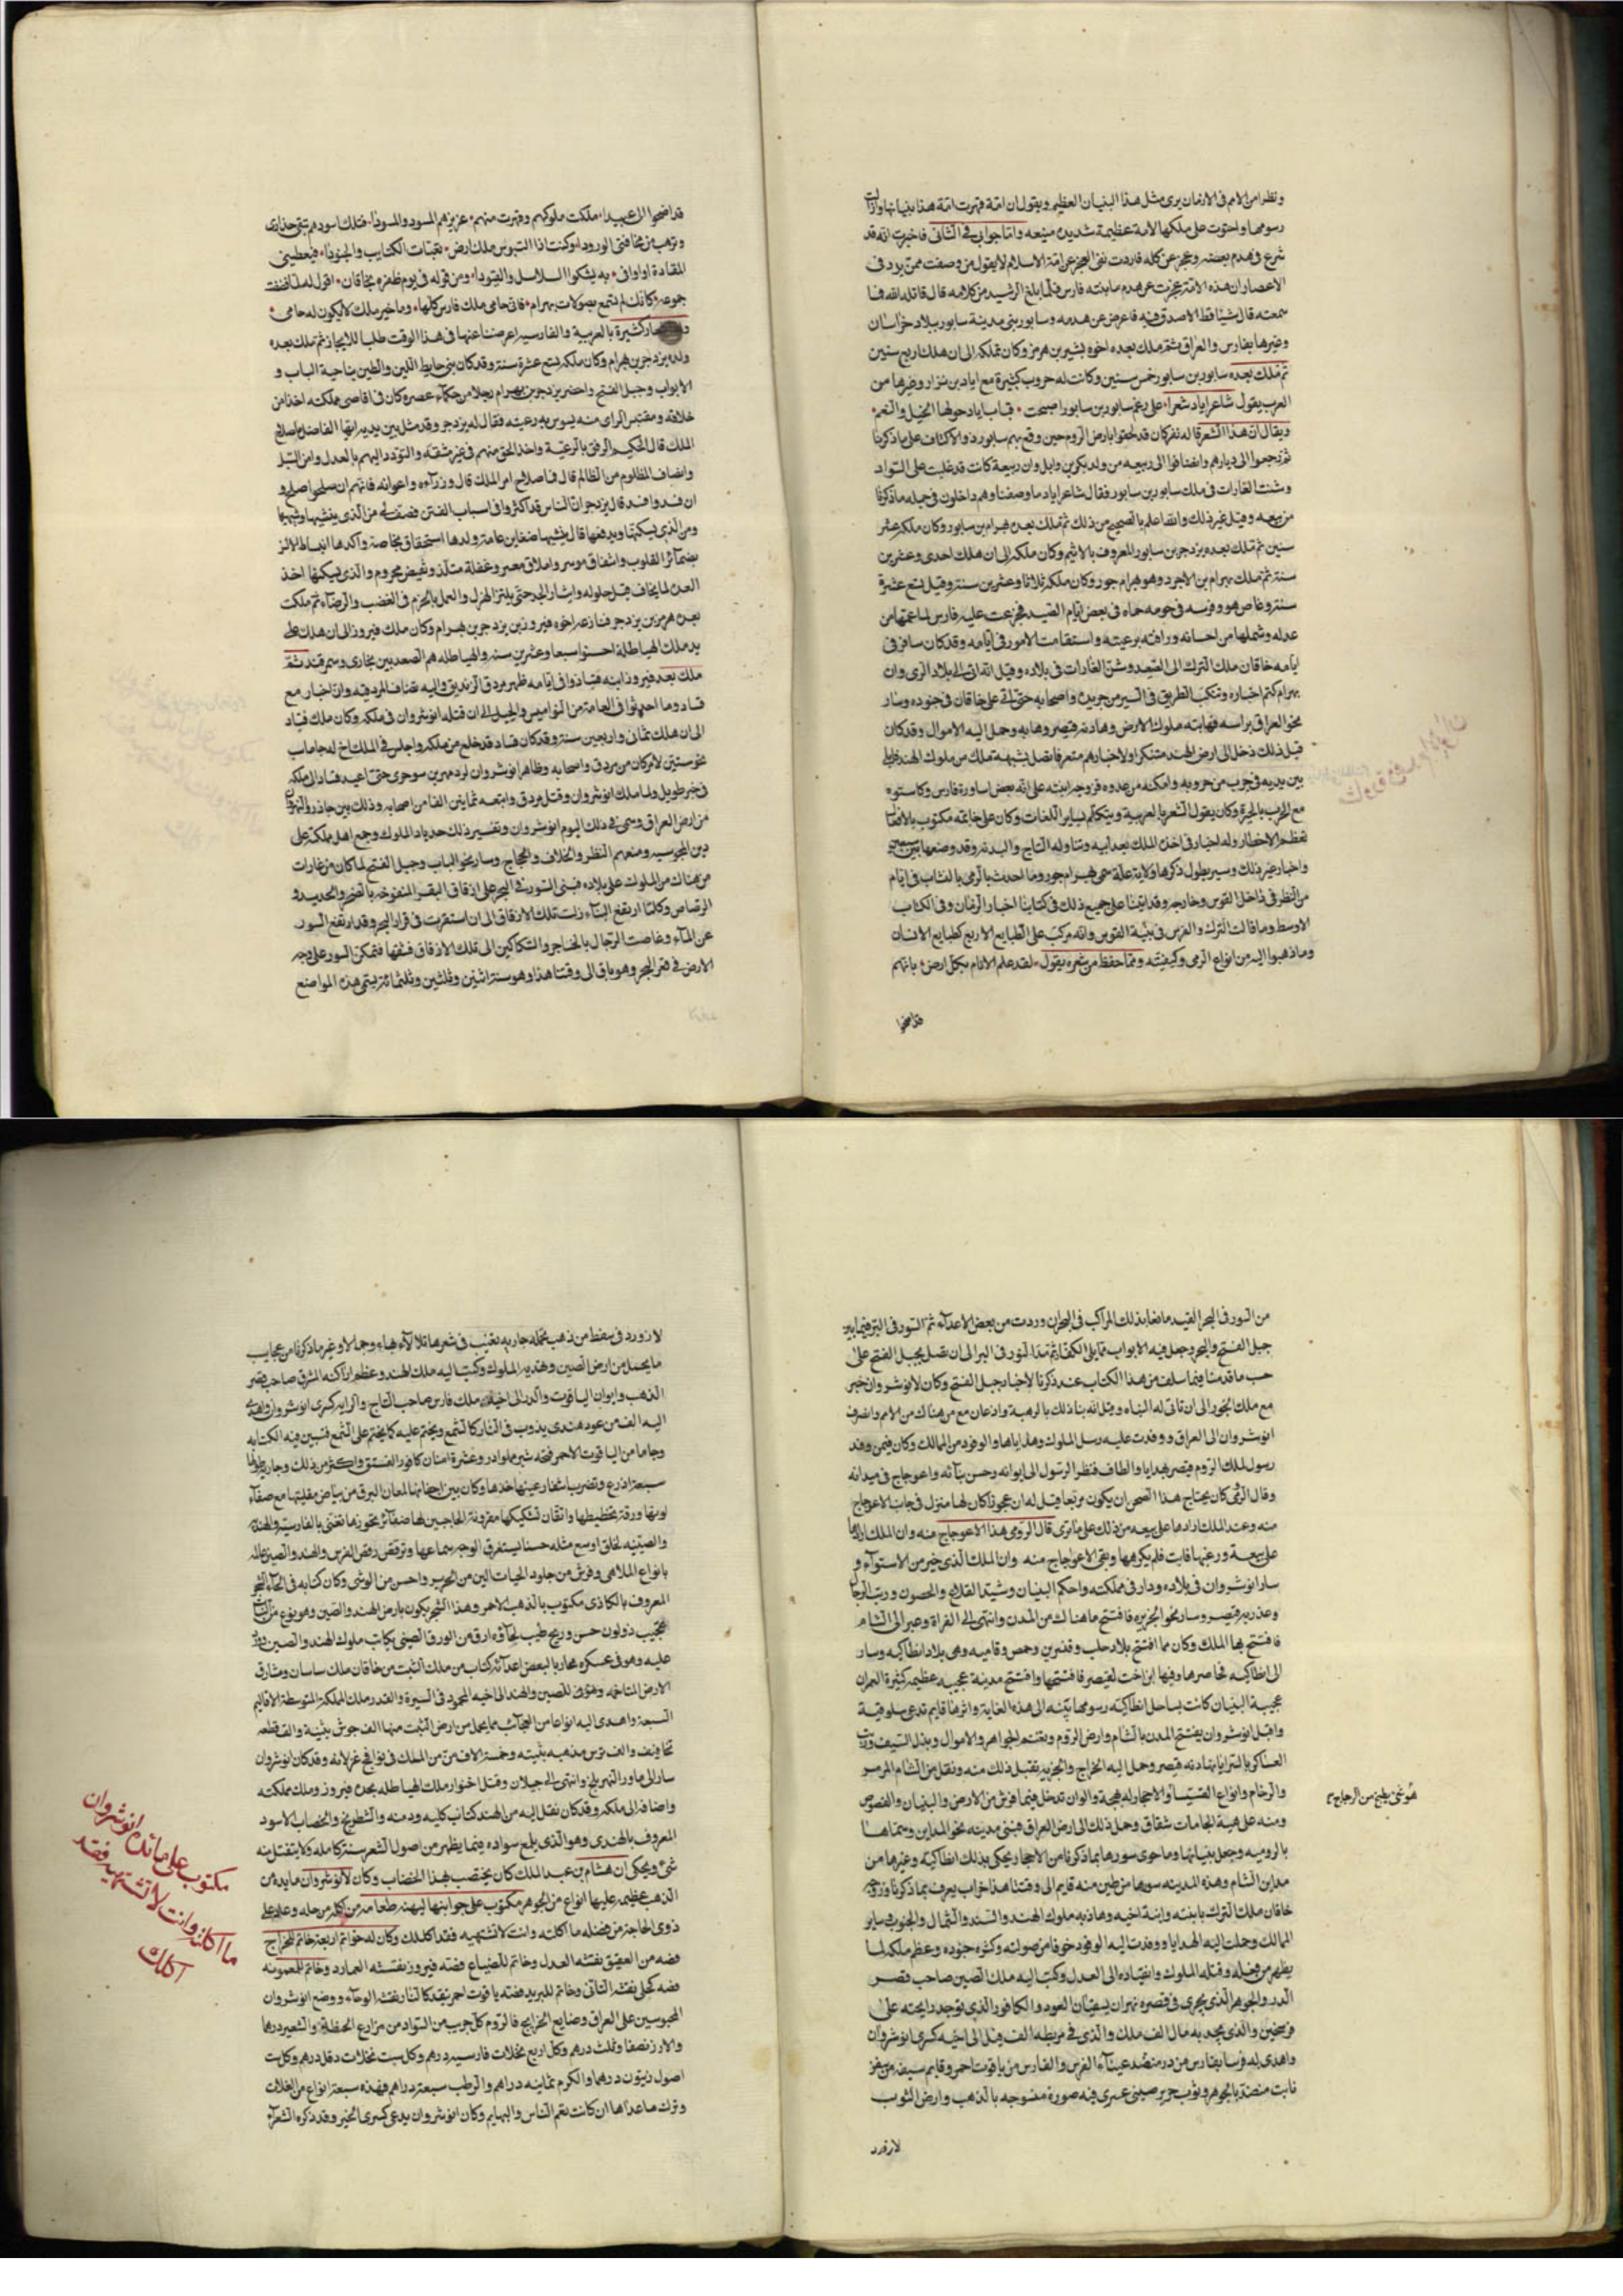 ونظر امن الامم فى الازمان يرى مثل هذا البنيان العظيم ويقول ان امة قهرت امة هذا بنيانها وازالت
رسومها واحتوت على ملكها لامة عظيمة شديدة منيعه واما جوابى فى الثانى فاخبرت انه قد
شرع فى هدم بعضه وعجز عن كله فاردت نفى العجز عن امة الاسلام لا يقول من وصفت ممن يرد فى
الاعصار ان هذه الامة عجزت عن هدم ما بنته فارس فلما بلغ الرشيد من كلامه قال قاتله الله فما
سمعته قال شيئا قط الا صدق فيه فاعرض عن هدمه وسابور بنى مدينة سابور ببلاد خراسان
وغيرها بفارس والعراق ثم ملك بعده اخوه بن هرمز وكان ملكه الى ان هلك اربع سنين
ثم ملك بعده سابور بن سابور خمس سنين وكانت له حروب كثيرة مع اياد بن نزار وغيرها من
العرب يقول شاعر اياد شعرا على رغم سابور بن سابور اصبحت قباب اياد حولها الخيل والنعم
ويقال ان هذا الشعر قاله نفر كان قد لحقوا بارض الروم حين وقع بهم سابور ذو الاكتاف على ما ذكرنا
ثم رجعوا الى ديارهم وانضافوا الى ربيعه من ولد بكر بن وايل وان ربيعة كانت قد غلبت على السواد
وشنت الغارات فى ملك سابور بن سابور فقال شاعر اياد ما وصفنا وهم داخلون فى جمله ما ذكرنا
من ربيعه وقيل غير ذلك والله اعلم بالصحيح من ذلك ثم ملك بعده بهرام بن سابور وكان ملكه عشر
سنين ثم ملك بعده يزدجر بن سابور المعروف بالاثيم وكان ملكه الى ان هلك احدى وعشرين
سنة ثم ملك بهرام بن الاجرد وهو بهرام جور وكان ملكه ثلاثا وعشرين سنة وقيل تسع عشرة
سنة وغاص هو وفرسه فى حومه حماه فى بعض ايام الصيد فجزعت عليه فارس لما عمها من
عدله وشملها من احسانه ورافته برعيته واستقامت الامور فى ايامه وقد كان سافر فى
ايامه خاقان ملك الترك الى الصغد وشن الغارات فى بلاده وقيل انه اتى الى بلاد الرى وان
بهرام كتم اخباره وتنكب الطريق فى السير من جريدة واصحابه حتى اتى على خاقان فى جنوده وسار
نحو العراق براسه فهابته ملوك الارض وهادنه قيصر وهابه وحمل اليه الاموال وقد كان
قبل ذلك دخل الى ارض الهند متنكرا ولاخبارهم متعرفا تصل بشبهمه ملك من ملوك الهند
بين يديه فى حرب من حروبه وامكنه من عدوه فزوجه ابنته على انه بعض اساورة فارس وكا نشوه
مع العرب بالحيرة وكان يقول الشعر بالعربية ويتكلم بساير اللغات وكان على خاتمه مكتوب بالافعال
تعظم الاخطار وله اخبار فى اخذه الملك بعد ابيه وتناوله التاج والبدنه وقد وضعها بين سبعين
واخبار غير ذلك وسير يطول ذكرها ولاية علة سمى بهرام جور وما احدث بالرمى بالنشاب فى ايام
من النظر فى داخل القوس وخارجه وقد اتينا على جميع ذلك فى كتابنا اخبار الزمان وفى الكتاب
الاوسط وما قالت الترك والفرس فى بنية القوس وانه مركب على الطبايع الاربع كطبايع الانسان
وما ذهبوا اليه من انواع الرمى وكيفيته ومما حفظ من شعره يقول لقد علم الانام بكل ارض بانهم
قد اضحوا
قد اضحوا لى عبيدا ملكت ملوكهم وقهرت منهم عزيزهم المسود والمسودا فتلك اسودهم تبقى حذارى
وترهب من مخافتى الورودا وكنت اذا التبوس ملك ارض تعبات الكتايب والجنودا فيعطينى
المقادة او اوافى به يشكوا السلاسل والقيودا ومن قوله فى يوم ظفره بخاقان اقول له لما فضضت
جموعه كانك لم تسمع بصولات بهرام فانى حامى ملك فارس كلها وما خير ملك لا يكون له حامى
كثيرة بالعربية والفارسيه اعرضنا عنها فى هذا الوقت طلبا للايجاز ثم ملك بعده
ولده يزدجر بن بهرام وكان ملكه تسع عشرة سنة وقد كان بنى حايط اللبن والطين بناحية الباب و
الابواب وجبل الفتح واحضر يزدجر بن بهرام رجلا من حكماء عصره كان فى اقاصى مملكته اخذ من
خلاقه ومقتبس الراى منه يسوس به رعيته فقال له يزدجر وقد مثل بين يديه ايها الفاضل ما صلاح
الملك قال الحكيم الرفق بالرعية واخذ الحق منهم فى غير مشقة والتودد اليهم بالعدل وامن السبل
وانصاف المظلوم من الظالم قال فما صلاح امر الملك قال وزراءه واعوانه فانهم ان صلحوا صلح و
ان فسدوا فسد قال يزدجر ان الناس قد اكثروا فى اسباب الفتن فصف لى من الذى ينشيها ويهيجها
ومن الذى يسكنها ويدفعها قال ينشيها ضغاين عامة ولدها استحقاق بخاصة واكدها انبساط الالسن
بضمائر القلوب واشفاق موسر واملاق معسر وغفلة متلذذ وتغيض محروم والذى يسكنها اخذ
العدة لما يخاف قبل حلوله وايثار الجد حتى يلتذ الهزل والعمل بالحزم فى الغضب والرضاء ثم ملكت
بعده هرمز بن يزدجر فنازعه اخوه فيروز بن يزدجر بن بهرام وكان ملك فيروز الى ان هلك على
يد ملك الهياطلة سبعا وعشرين سنة والهياطله هم الصعد بين بخارى وسمرقند ثم
ملك بعد فيروز ابنه قباذ وفى ايامه ظهر مردق الزنديق واليه تضاف المردقيه وله اخبار مع
قباد وما احدثوا فى العامة من النواميس والحيل الى ان قتله انوشروان فى ملكه وكان ملك قباد
الى ان هلك ثمانى واربعين سنة وقد كان قباد قد خلع من ملكه واجلس فى الملك اخ له جاماسب
نحو سنتين لامر كان من مردق واصحابه وظاهر انوشروان حتى اعيد قباد الى ملكه
فى خبر طويل ولما ملك انوشروان وقتل مردق واتبعه ثمانين الفا من اصحابه وذلك بين جاذر والنهروان
من ارض العراق وسمى فى ذلك اليوم انوشروان وتفسير ذلك جديد الملوك وجمع اهل مملكته على
دين المجوسيه ومنعهم النظر والخلاف والحجاج وسار نحو الباب وجبل الفتح لما كان من غارات
من هناك من الملوك على بلاده فبنى السور فى البحر على ازقاق البقر المنفوخه بالصخر والحديد و
الرصاص وكلما ارتفع البناء نزلت تلك الازقاق الى ان استقرت فى قرار البحر وقد ارتفع السور
عن الماء وغاصت الرجال بالخناجر والسكاكين الى تلك الازقاق فشقتها فتمكن السور على وجه
الارض فى قعر البحر وهو باق الى وقتنا هذا وهو سنة اثنين وثلثين وثلثمائة يسمى هذه المواضع
من السور فى البحر القيد مانعا بذلك المراكب فى البحر ان وردت من بعض الاعداء ثم السور فى البر فيما بين
جبل الفتح والبحر وجعل فيه الابواب مما يلى الكفار ثم مد السور فى البر الى ان تصل بجبل الفتح على
حسب ما قدمنا فيما سلف من هذا الكتاب عند ذكرنا لاخبار جبل الفتح وكان لانوشروان خبر
مع ملك الخزر الى ان تاتى له البناء وقيل انه بنا ذلك بالرهبة واذعان مع من هناك من الامم وانصرف
انوشروان الى العراق ووفدت عليه رسل الملوك وهداياها والوفود من الممالك وكان فيمن وفد
رسول لملك الروم قيصر بهدايا والطاف فنظر الرسول الى ايوانه وحسن بنائه واعوجاج فى ميدانه
وقال الرومى كان يحتاج هذا الصحن ان يكون مربعا فقيل له ان عجوزا كان لها منزل فى جانب الاعوجاج
منه وعند الملك ارادها على بيعه من ذلك على ما ترى قال الرومى هذا الاعوجاج منه وان الملك ارادها
على بيعه ورغبها فابت فلم يكرهها وبقى الاعوجاج منه وان الملك الذى خير من الاستواء و
سار انوشروان فى بلاده ودار فى مملكته واحكم البنيان وشيد القلاع والحصون ورتب الرجال
وغدر به قيصر وسار نحو الجزيره فافتتح ما هناك من المدن وانتهى الى الفراة وعبر الى الشام
فافتتح بها الملك وكان مما افتتح بلاد حلب وقنسرين وحمص وفاميه وهى بلاد انطاكيه وسار
الى انطاكيه فحاصرها وفيها ابن اخت لقيصر فافتتحها وافتتح مدينة عجيبه عظيمه كثيرة العمران
عجيبة البنيان كانت بساحل انطاكية رسومها بينه الى هذه الغاية واثرها قايم تدعى سلوقية
واقبل انوشروان يفتتح المدن بالشام وارض الروم ويغتنم الجواهر والاموال وبذل السيف وبث
العساكر والسرايا فهادنه قيصر وحمل اليه الخراج والجزيه فقبل ذلك منه ونقل من الشام المرمر
والرخام وانواع الفسيفسا والاحجار له بهجة والوان تدخل فيما فرش من الارض والبنيان والفصوص
ومنه على هيئة الجامات شقاق وحمل ذلك الى ارض العراق فبنى مدينه نحو المداين وسماها
بالروميه وجعل بنيانها وما حوى سورها بما ذكرنا من الاحجار يحكى بذلك انطاكية وغيرها من
مداين الشام وهذه المدينه سورها من طين منه قايم الى وقتنا هذا خراب يعرف بما ذكرنا وزوجه
خاقان ملك الترك بابنته وابنة اخيه وهادنه ملوك الهند والسند والشمال والجنوب وساير
الممالك وحملت اليه الهدايا ووفدت اليه الوفود خوفا من صولته وكثره جنوده وعظم ملكه لما
يظهر من فعله وقتله الملوك وانقياده الى العدل وكتب اليه ملك الصين صاحب قصر
الدر والجوهر الذى يجرى فى قصره نهران يسقيان العود والكافور الذى يوجد رايحته على
فرسخين والذى يخدمه مال الف ملك والذى فى مربطه الف فيل الى اخيه كسرى انوشروان
واهدى له فرسا بفارس من در منضد عينا الفرس والفارس من ياقوت احمر وقايم سيفه من
نابت منضد بالجوهر وثوب حرير صينى عسجدى فيه صورة منسوجه بالذهب وارض الثوب
لازورد
هو شئ يطبخ من الزجاج
لازورد فى سفط من ذهب تحمله جاريه تغيب فى شعرها تلالأ بهاء وجمالا وغير ما ذكرنا من عجايب
ما يحمل من ارض الصين وهديه الملوك وكتب اليه ملك الهند وعظيم اراكنه المشرق صاحب قصر
الذهب وايوان الياقوت والدر الى اخيه ملك فارس صاحب التاج والرايه كسرى انوشروان واهدى
اليه الف من عود هندى يذوب فى النار كالشمع ويختم عليه كما يختم على الشمع فتبين فيه الكتابه
وجاما من الياقوت الاحمر فتحه شبر مملوا در وعشرة امنان كافور الفستق واكثر من ذلك وجاريه طولها
سبعة اذرع وتضرب اشفار عينيها خدها وكان بين اجفانها لمعان البرق من بياض مقلتيها مع صفاء
لونها ورقة تخطيطها واتقان تشكيلها مقرونة الحاجبين لها ضفائر تجرها تغنى بالفارسية والهنديه
والصينيه لخلق اوسع مثله حسنا يستغرق الوجه سماعها وترقص رقص الفرس والهند والصين عالمه
بانواع الملاهى وفرش من جلود الحيات الين من الحرير واحسن من الوشى وكان كتابه فى لحاء الشجر
المعروف بالكاذى مكتوب بالذهب الاحمر وهذا الشجر يكون بارض الهند والصين وهو نوع من النبات
عجيب ذو لون حسن وريح طيب لحاؤه ارق من الورق الصينى يكاتب ملوك الهند والصين وورد
عليه وهو فى عسكره محاربا لبعض اعدائه كتاب من ملك التبت من خاقان ملك ساسان ومشارق
الارض المتاخمه للصين والهند الى اخيه المحمود فى السيرة والقدر ملك المملكة المتوسطة الاقاليم
السبعة واهدى اليه انواعا من العجائب مما يحمل من ارض التبت منها الف جوش بتبتية والف قطعه
تخافيف والف ترس مذهبه بتبتيه وخمسة الاف من من المسك فى نوافج غزلانه وقد كان انوشروان
سار الى ماوراء النهر بلخ وانتهى الى جيلان وقتل اخنوار ملك الهياطله بجده فيروز وملك مملكته
واضافه الى ملكه وقد كان نقل اليه من الهند كتاب كليه ودمنه والشطرنج والخضاب الاسود
المعروف بالهندى وهو الذى يلمع سواده فيما يظهر من اصول الشعر سنة كامله ولا ينتقل منه
شئ ويحكى ان هشام بن عبد الملك كان يختضب بهذا الخضاب وكان لانوشروان مايده من
الذهب عظيمه عليها انواع من الجوهر مكتوب على جوانبها ليهنه طعامه من اكله من حله وعاد على
ذوى الحاجة من فضله ما اكلته وانت لا تشتهيه فقد اكلك وكان له خواتم اربعة خاتم للخراج
فصه من العقيق نقشه العدل وخاتم للضياع فصه فيروز نقشه العماره وخاتم للمعونه
فصه كحلى نقشه التانى وخاتم للبريد فصه ياقوت احمر يتقد كالنار نقشه الوحاء ووضع انوشروان
على العراق وضايع الخراج فالزم كل جريب من السواد من مزارع الحنطة والشعير درهما
والارز نصفا وثلث درهم وكل اربع نخلات فارسيه درهم وكل ست نخلات دقل درهم وكل ست
اصول زيتون درهما والكرم ثمانيه دراهم والرطب سبعة دراهم فهذه سبعة انواع من الغلات
وترك ما عداها ان كانت تعم الناس والبهايم وكان انوشروان يدعى كسرى الخير وقد ذكره الشعراء
مكتوب على مائدة انوشروان
ما اكلته وانت لا تشتهيه فقد
اكلك